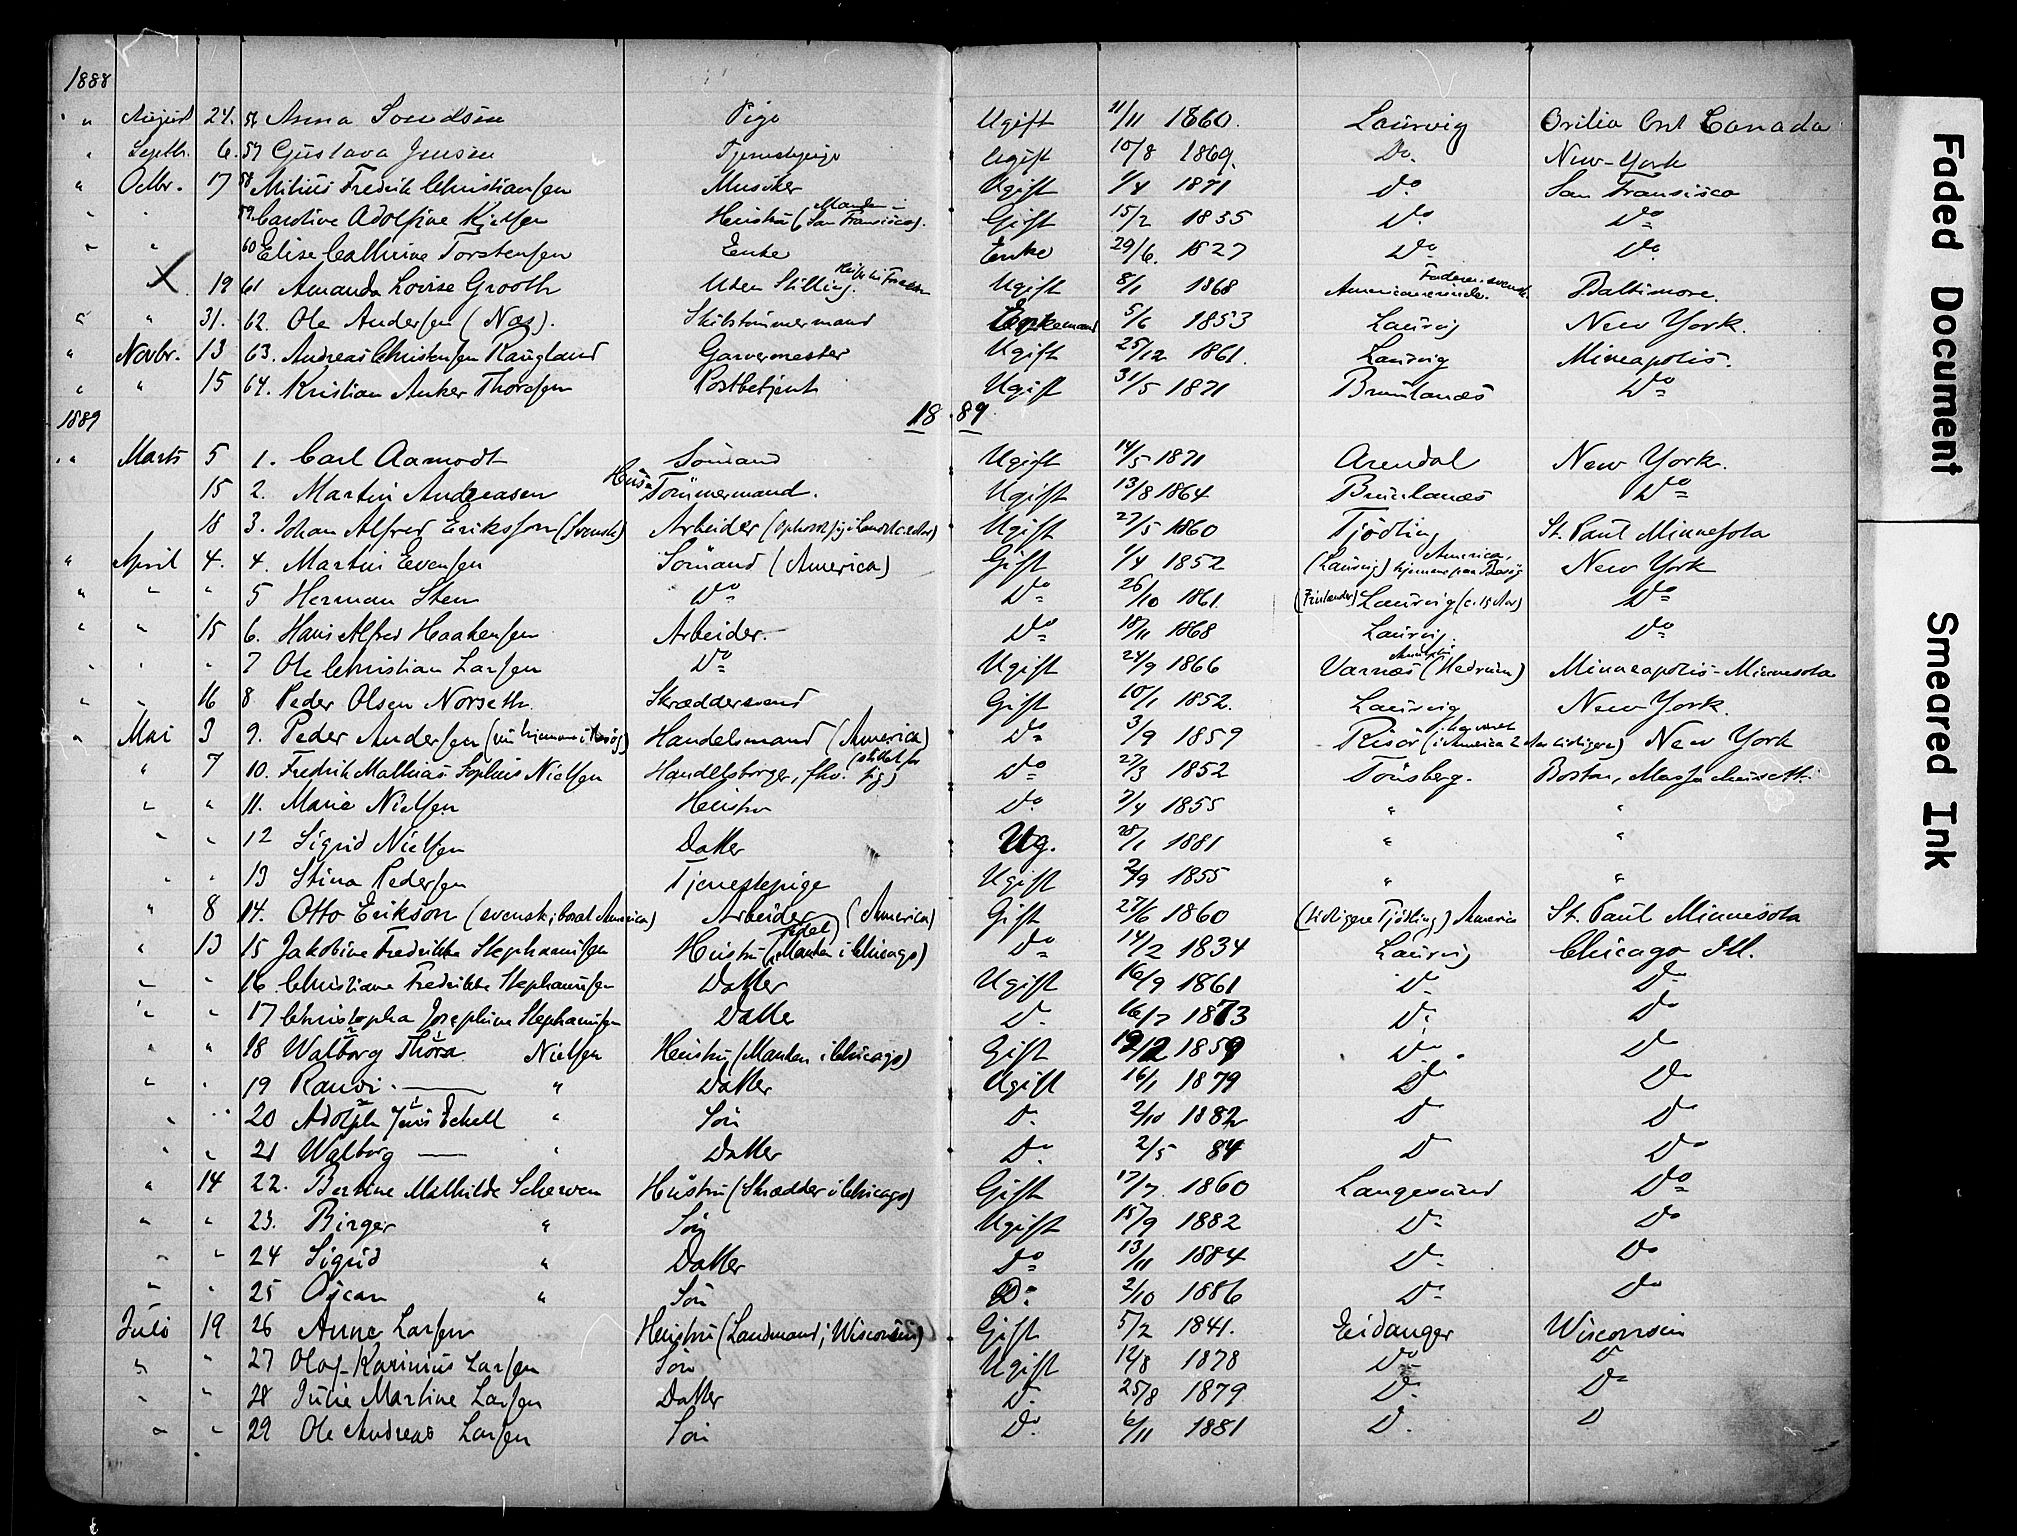 1888
" August 24. 56 Anna Sondsen Pige Ugift 21/11 1860. Laurvig Orilia Ont Canada
" Septbr. 6. 57 Gustava Jensen Tjenestepige Ugift 10/8 1869. Do. New-York
" Octbr. 17 58 Milius Fredrik Christiansen Musiker Ugift 1/4 1871 Do San Fransisco
" " 59. Caroline Adolfine Kjelsen Hustru (Manden i San Fransisco). Gift 15/2 1835 Do. Do
" " 60 Elise Cathrine Torstensen Enke Enke 29/6. 1827 Do Do
X 19 61 Amanda Lovise Grooth Uden Stilling. Ugift 8/1 1868 Americanerinde. Faderen svensk. Baltimore.
" " 31. 62. Ole Andersen (Næs). Skibstømmermand Enkemand 5/6 1853 Laurvig New York.
" Novbr. 13 63. Andreas Christensen Kaugland Garvermester Ugift 25/12 1861. Laurvig Mineapolis.
" " 15 64. Kristian Anker Thorsen Postbetjent Ugift 31/5 1871 Brunlanæs Do
1889 18 89
" Marts 5 1. Carl Aamodt Sømand Ugift 14/5 1871 Arendal New York.
15 2. Martin Andreasen Hus Tømmermand. Ugift 13/8 1864 Brunlanæs Do
18 3. Johan Alfred Eriksson (Svensk) Arbeider Ugift 27/5 1860 Tjødling St. Paul Minnesota
" April 4. 4. Martin Evensen Sømand (America) Gift 1/4 1852 (Laurvig) America, hjemme paa Besøg New York
" " " 5 Herman Sten Do Do 26/10 1861. (Finlænder) Laurvig (c. 15 Aar) Do
" " 15 6. Hans Alfred Haakensen Arbeider. Do 18/11 1868 Laurvig. Do
" " " 7 Ole Christian Larsen Do Ugift 24/9 1866 Varnæs (Hedrum) Minneapolis-Minnesota
" " 16 8 Peder Olsen Norseth. Skræddersvend Gift 10/1 1852. Laurvig New York.
" Mai 3 9. Peder Andersen (nu hjemme i Besøg) Handelsmand (America) Do 3/9 1859 Risør (har været i America 2 Aar tidligere) New York
" 7 10. Fredrik Mathias Sophus Nielsen Handelsborger, fhv. Do 27/3 1852 Tønsberg. Boston, Massachusetts.
" " 11. Marie Nielsen Hustru Do 7/4 1855 " "
" " 12 Sigrid Nielsen Datter Ug. 28/1 1881 " "
" " 13 Stina Pedersen Tjenestepige Ugift 2/9 1855 " "
" 8 14. Otto Erikson (svensk, bosat America) Arbeider (America) Gift 27/6 1860 (tidligere Tjødling) America St. Paul Minnesota
" 13 15 Jakobine Fredrikke Stephansen Hustru (Manden i Chicago) Do 14/2 1834 Laurvig Chicago Ill.
" " 16. Christiane Fredrikke Stephansen Datter Ugift 16/9 1861 Do Do
" " 17 Christopha Josephine Stephansen Datter Do. 16/7 1873 Do Do
" " 18 Walborg Thora Nielsen Hustru (Manden i Chicago) Gift 12/2 1859 Do Do
" " 19 Randi. — " Datter Ugift 16/1 1879 Do Do
" " 20 Adolph Jens Eckell " Søn D. 2/10 1882 D Do
" " 21 Walborg — " Datter Do. 2/5 84 D Do
" 14 22. Bertine Mathilde Scherven Hustru (Skrædder i Chicago) Gift 17/7. 1860 Langesund Do
" " 23. Birger " Søn Ugift 15/9 1882 Do Do
" " 24 Sigrid " Datter Do 13/11 1884 Do Do
" " 25 Oscar " Søn Do 2/10 1886 Do Do
Juli 19 26 Anne Larsen Hustru (Landmand i Wisconsin) Gift 5/2 1841. Eidanger Wisconsin
" " 27 Olaf Karinius Larsen Søn Ugift 12/8 1878 Do D
" " 28 Julie Martine Larsen Datter D. 25/8 1879 D. Do
" " 29 Ole Andreas Larsen Søn Do. 6/11 1881 D. D
Faded Document
Smeared Ink